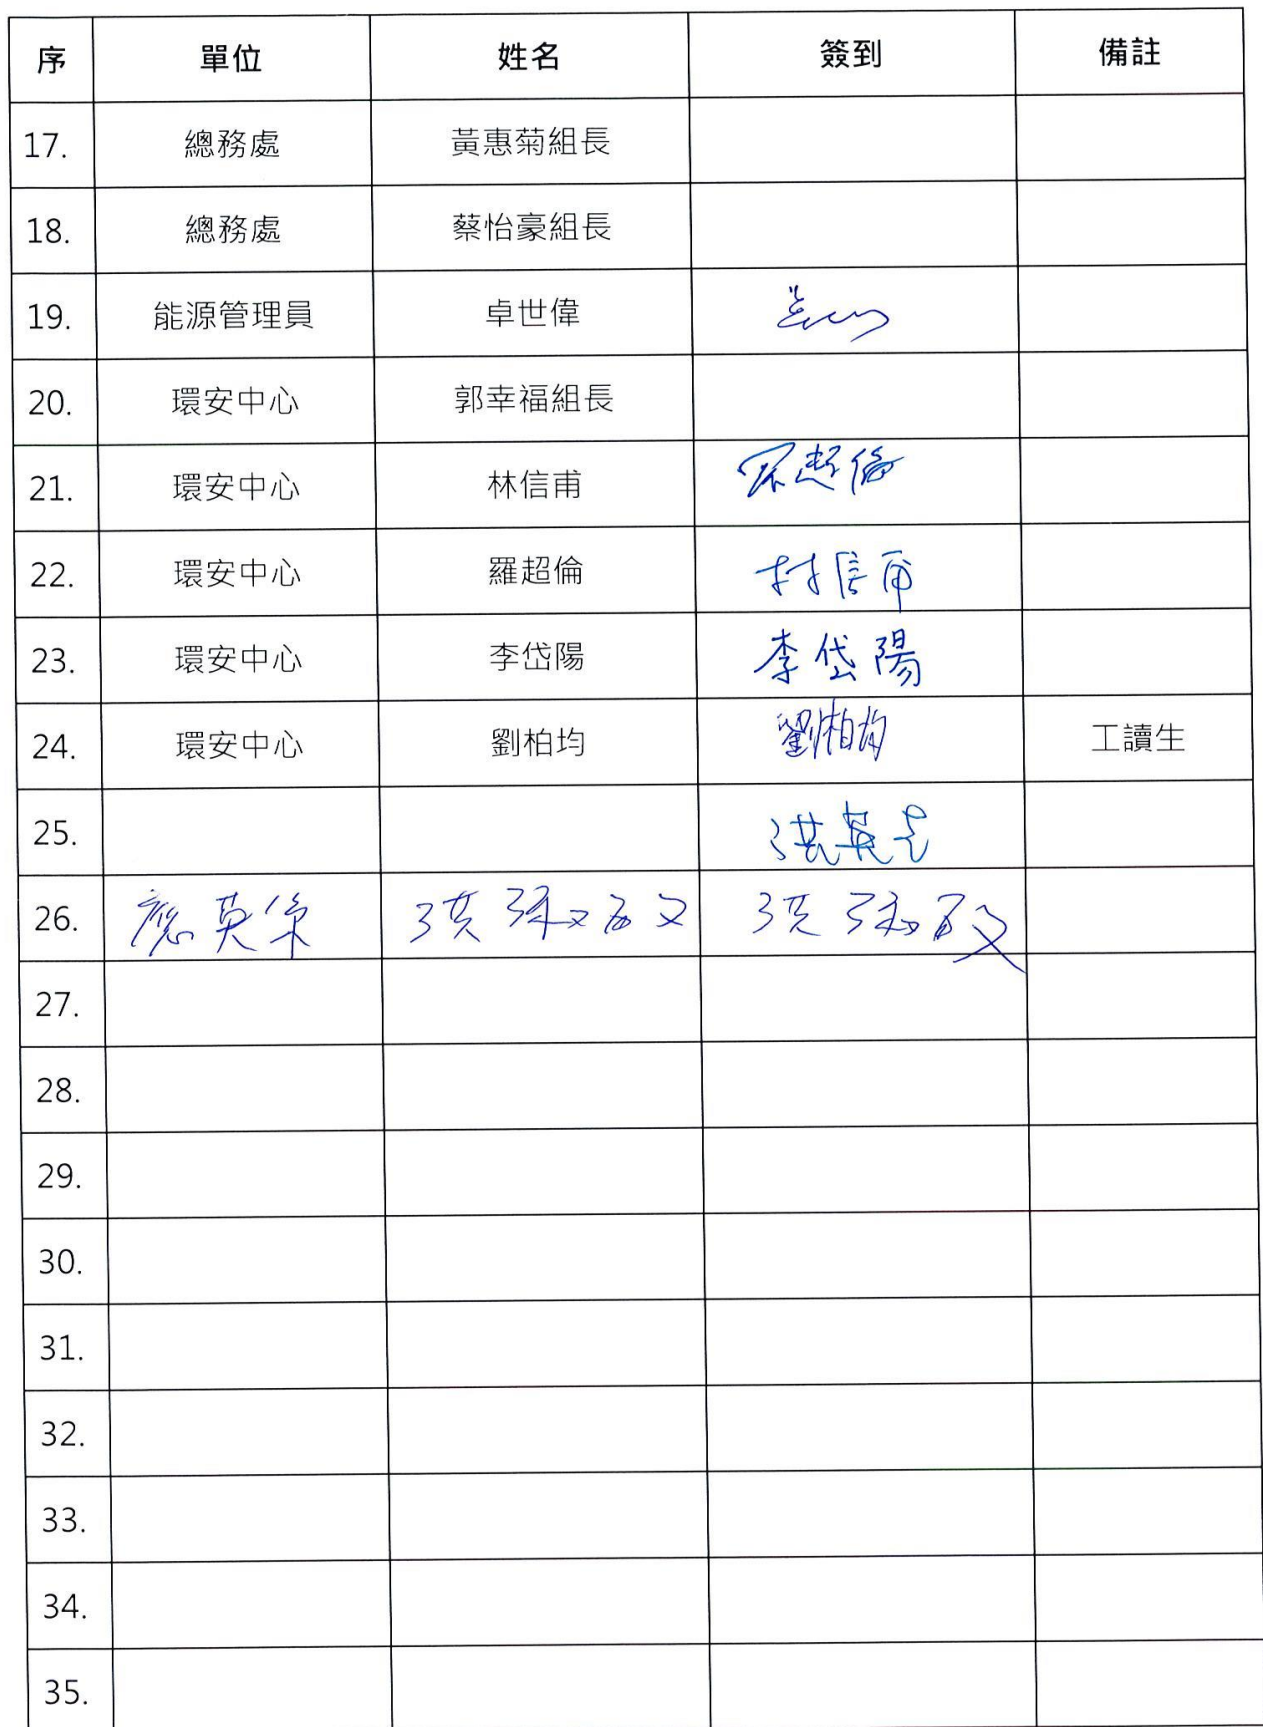 序 單位 姓名 簽到 備註
17. 總務處 黃惠菊組長
18. 總務處 蔡怡豪組長
19. 能源管理員 卓世偉
20. 環安中心 郭幸福組長
21. 環安中心 林信甫 超倫
22. 環安中心 羅超倫 林信甫
23. 環安中心 李岱陽 李岱陽
24. 環安中心 劉柏均 劉柏均 工讀生
25. 洪英
26. 應英系 洪 文 洪
27.
28.
29.
30.
31.
32.
33.
34.
35.